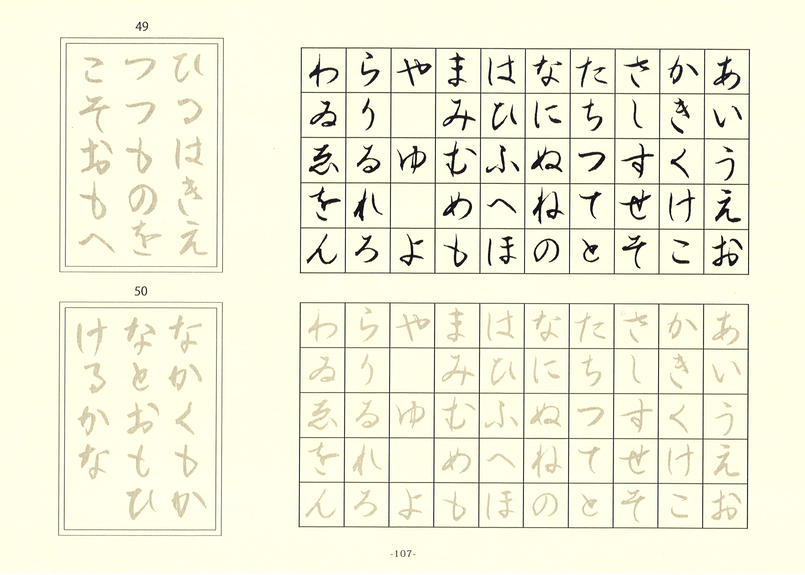 あいうえお
かきくけこ
さしすせそ
たちつてと
なにぬねの
はひふへほ
まみむめも
やゆよ
らりるれろ
わゐゑをん
49
ひるはきえ
つつものを
こそおもへ
あいうえお
かきくけこ
さしすせそ
たちつてと
なにぬねの
はひふへほ
まみむめも
やゆよ
らりるれろ
わゐゑをん
50
なかくもか
なとおもひ
けるかな
-107-